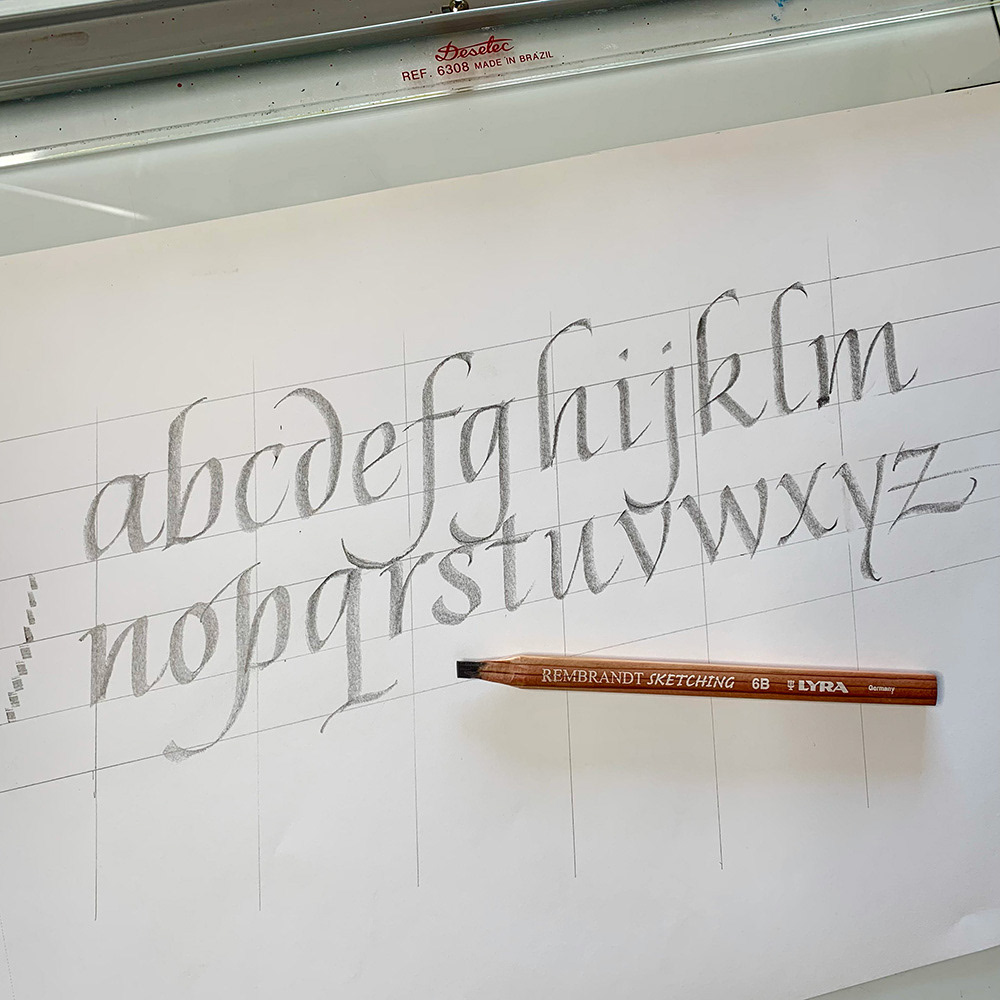 Desetec
REF. 6308 MADE IN BRAZIL
abcdefghijklm
nopqrstuvwxyz
REMBRANDT SKETCHING 6B LYRA Germany